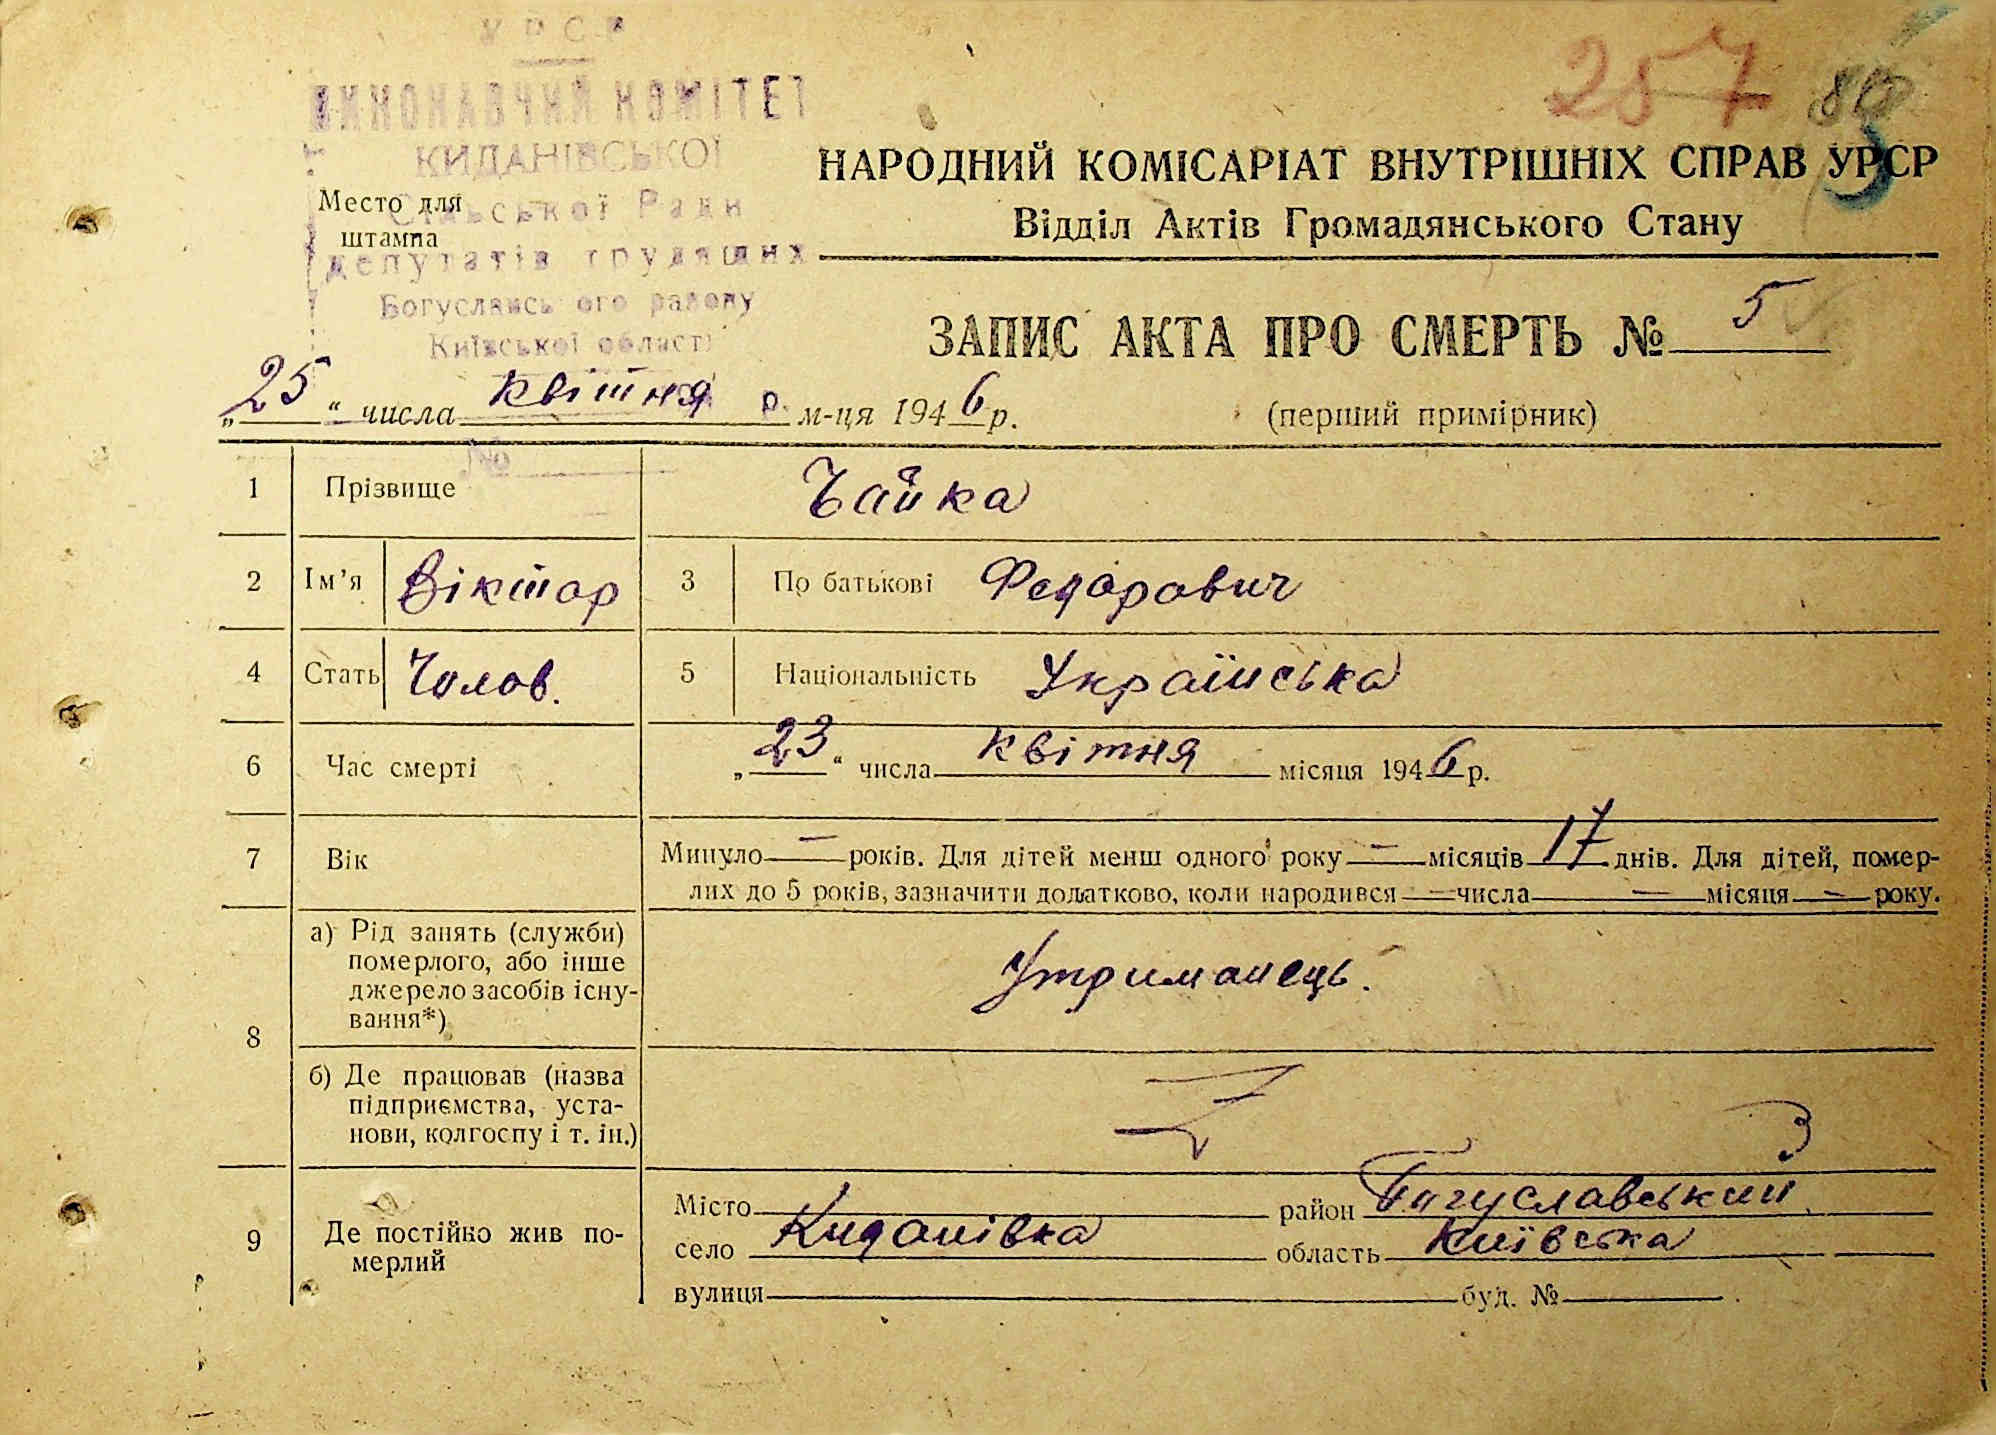 УРСР
ВИКОНАВЧИЙ КОМІТЕТ
КИДАНІВСЬКОЇ
Сільської Ради
депутатів трудящих
Богуславсь ого району
Київської області
р.
№
Место для
штампа
257
НАРОДНИЙ КОМІСАРІАТ ВНУТРІШНІХ СПРАВ УРСР
Відділ Актів Громадянського Стану
ЗАПИС АКТА ПРО СМЕРТЬ № 5
„25“ числа квітня м-ця 1946 р.
(перший примірник)
1 Прізвище Чайка
2 Ім’я Віктор 3 По батькові Федорович
4 Стать Чолов. 5 Національність Українська
6 Час смерті „23“ числа квітня місяця 1946 р.
7 Вік Минуло — років. Для дітей менш одного року — місяців 17 днів. Для дітей, помер-
лих до 5 років, зазначити додатково, коли народився — числа — місяця — року.
8 а) Рід занять (служби)
померлого, або інше
джерело засобів існу-
вання*)
Утриманець.
б) Де працював (назва
підприємства, уста-
нови, колгоспу і т. ін.)
9 Де постійно жив по-
мерлий
Місто район Богуславський
село Киданівка область Київська
вулиця буд. №